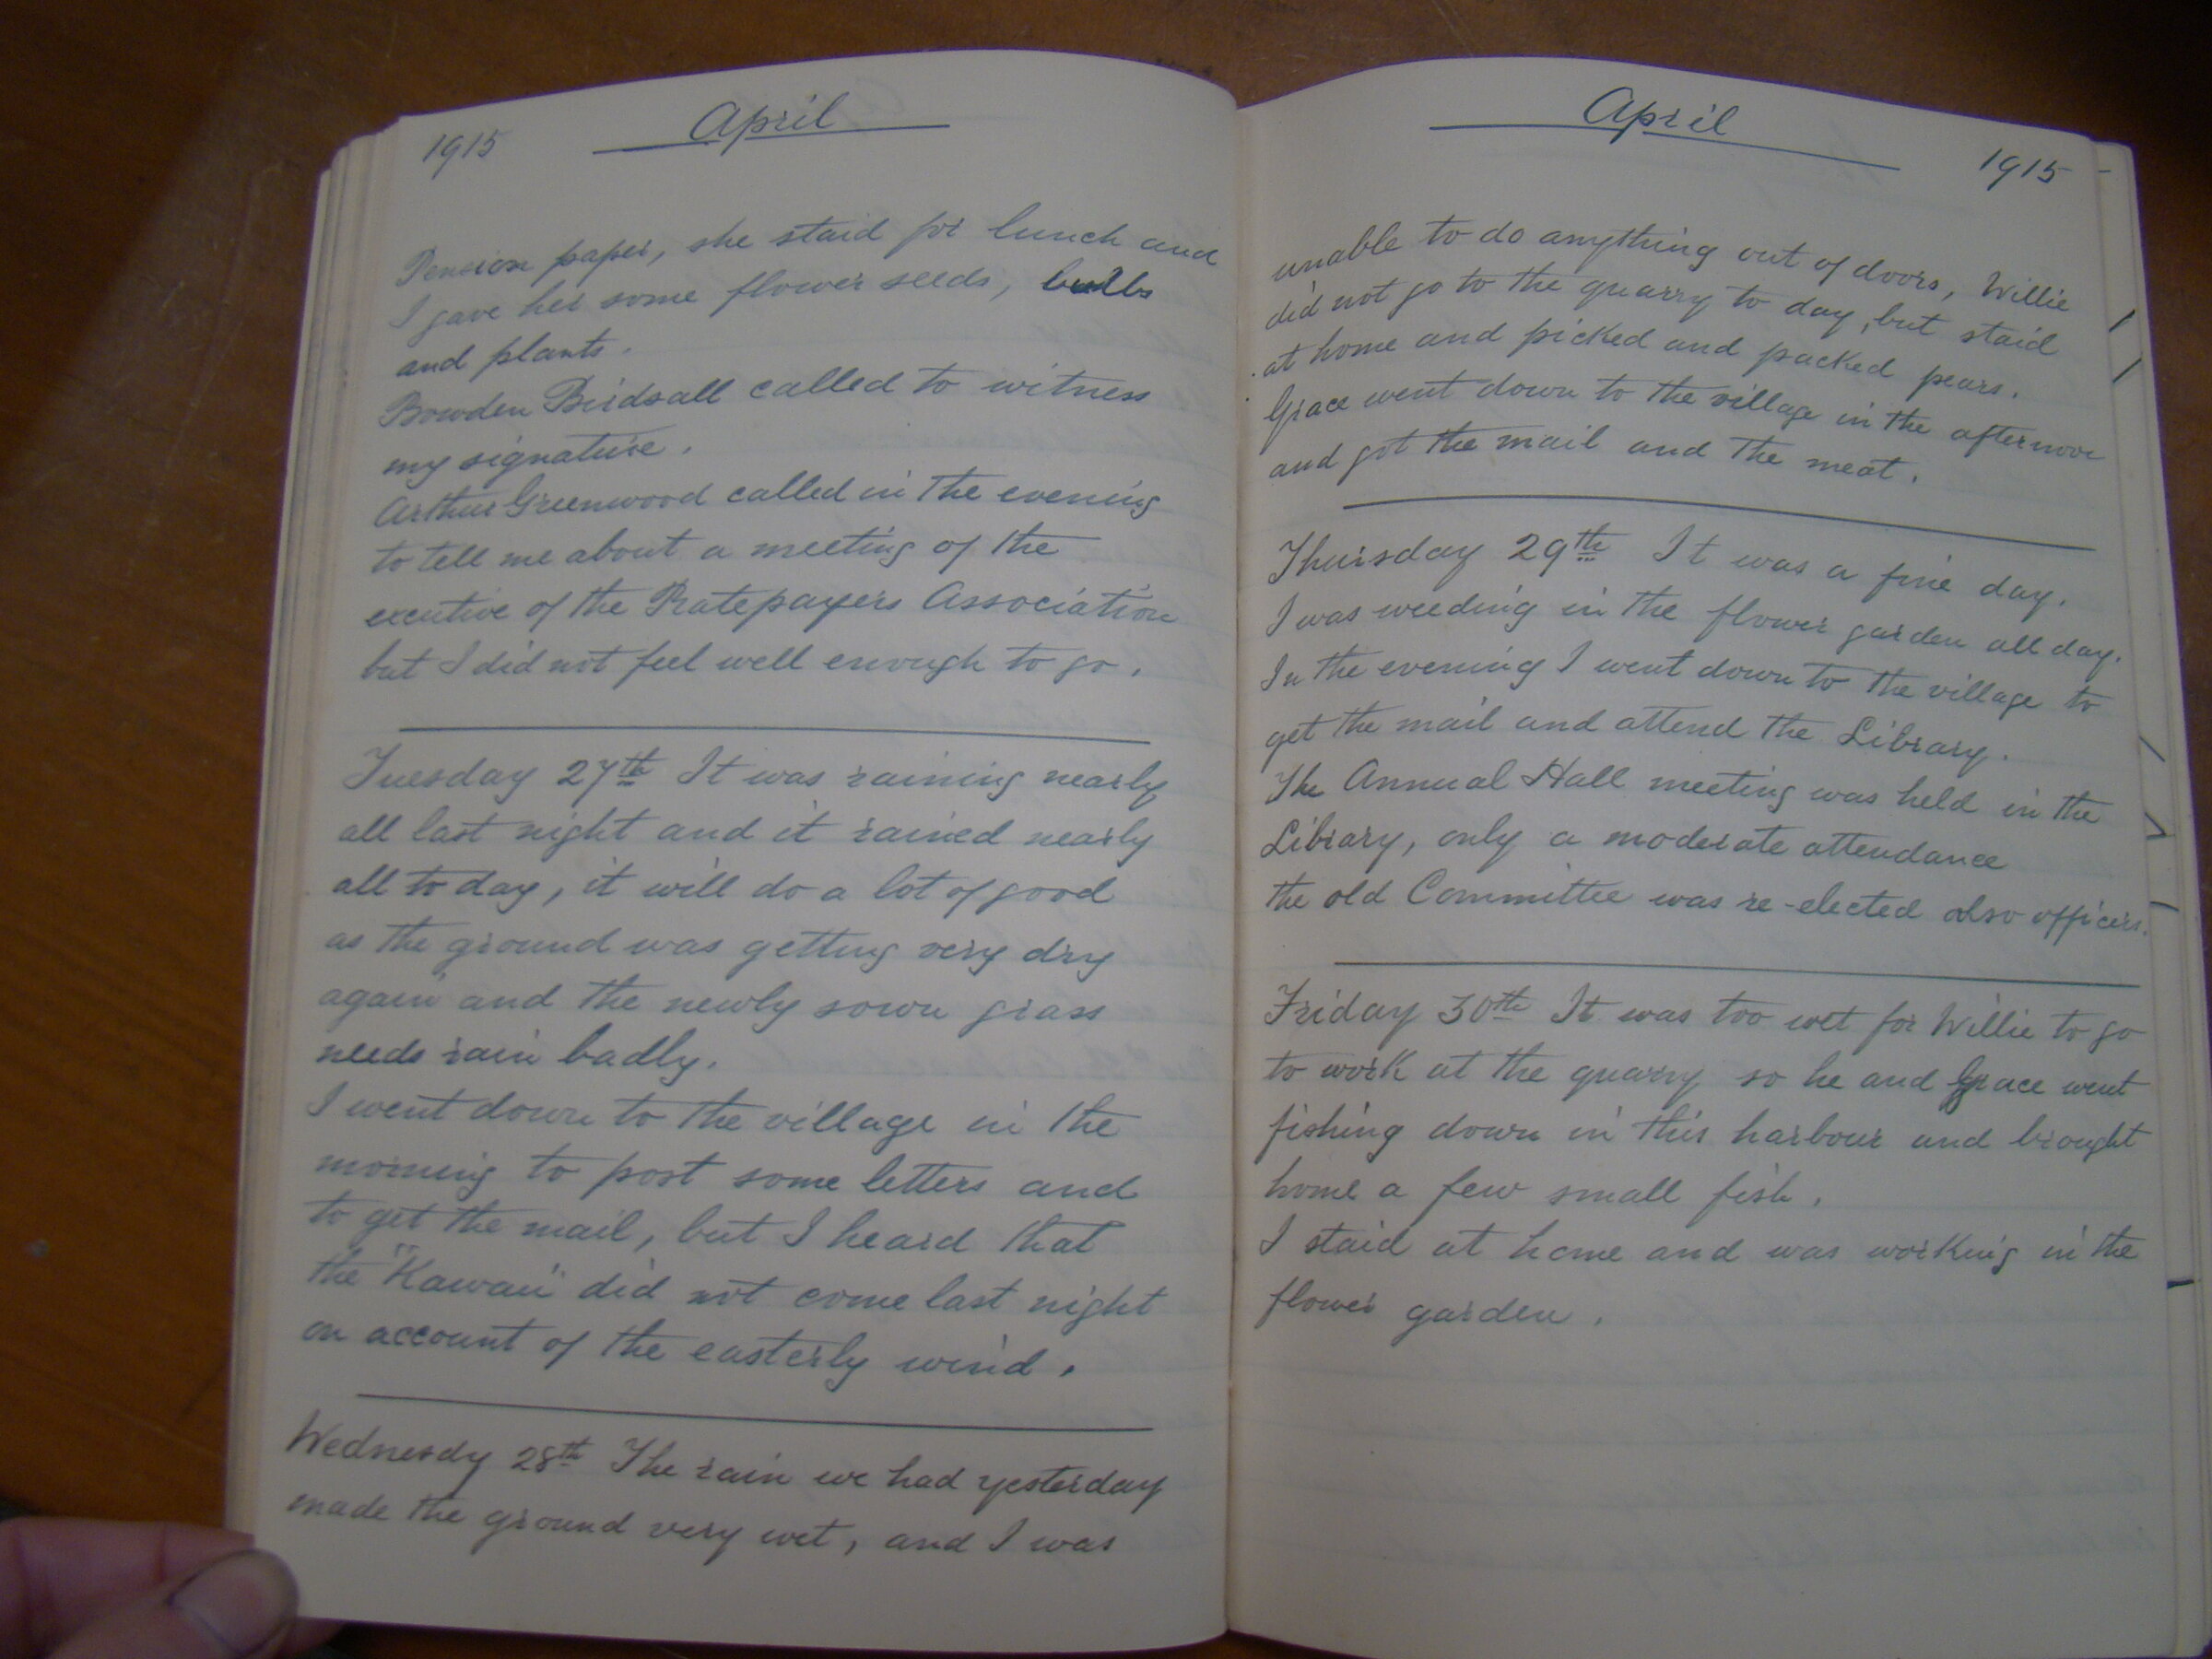 1915
April
Pension paper, she staid for lunch and
I gave her some flower seeds, bulbs
and plants.
Bowden Birdsall called to witness
my signature.
Arthur Greenwood called in the evening
to tell me about a meeting of the
executive of the Ratepayers Association
but I did not feel well enough to go.
Tuesday 27th It was raining nearly
all last night and it rained nearly
all to day, it will do a lot of good
as the ground was getting very dry
again and the newly sown grass
needs rain badly.
I went down to the village in the
morning to post some letters and
to get the mail, but I heard that
the "Kawau" did not come last night
on account of the easterly wind.
Wednesdy 28th The rain we had yesterday
made the ground very wet, and I was
April
1915
unable to do anything out of doors, Willie
did not go to the quarry to day, but staid
at home and picked and packed pears.
Grace went down to the village in the afternoon
and got the mail and the meat.
Thursday 29th It was a fine day.
I was weeding in the flower garden all day.
In the evening I went down to the village to
get the mail and attend the Library.
The Annual Hall meeting was held in the
Library, only a moderate attendance
the old Committee was re-elected also officers.
Friday 30th It was too wet for Willie to go
to work at the quarry so he and Grace went
fishing down in this harbour and brought
home a few small fish.
I staid at home and was working in the
flower garden.